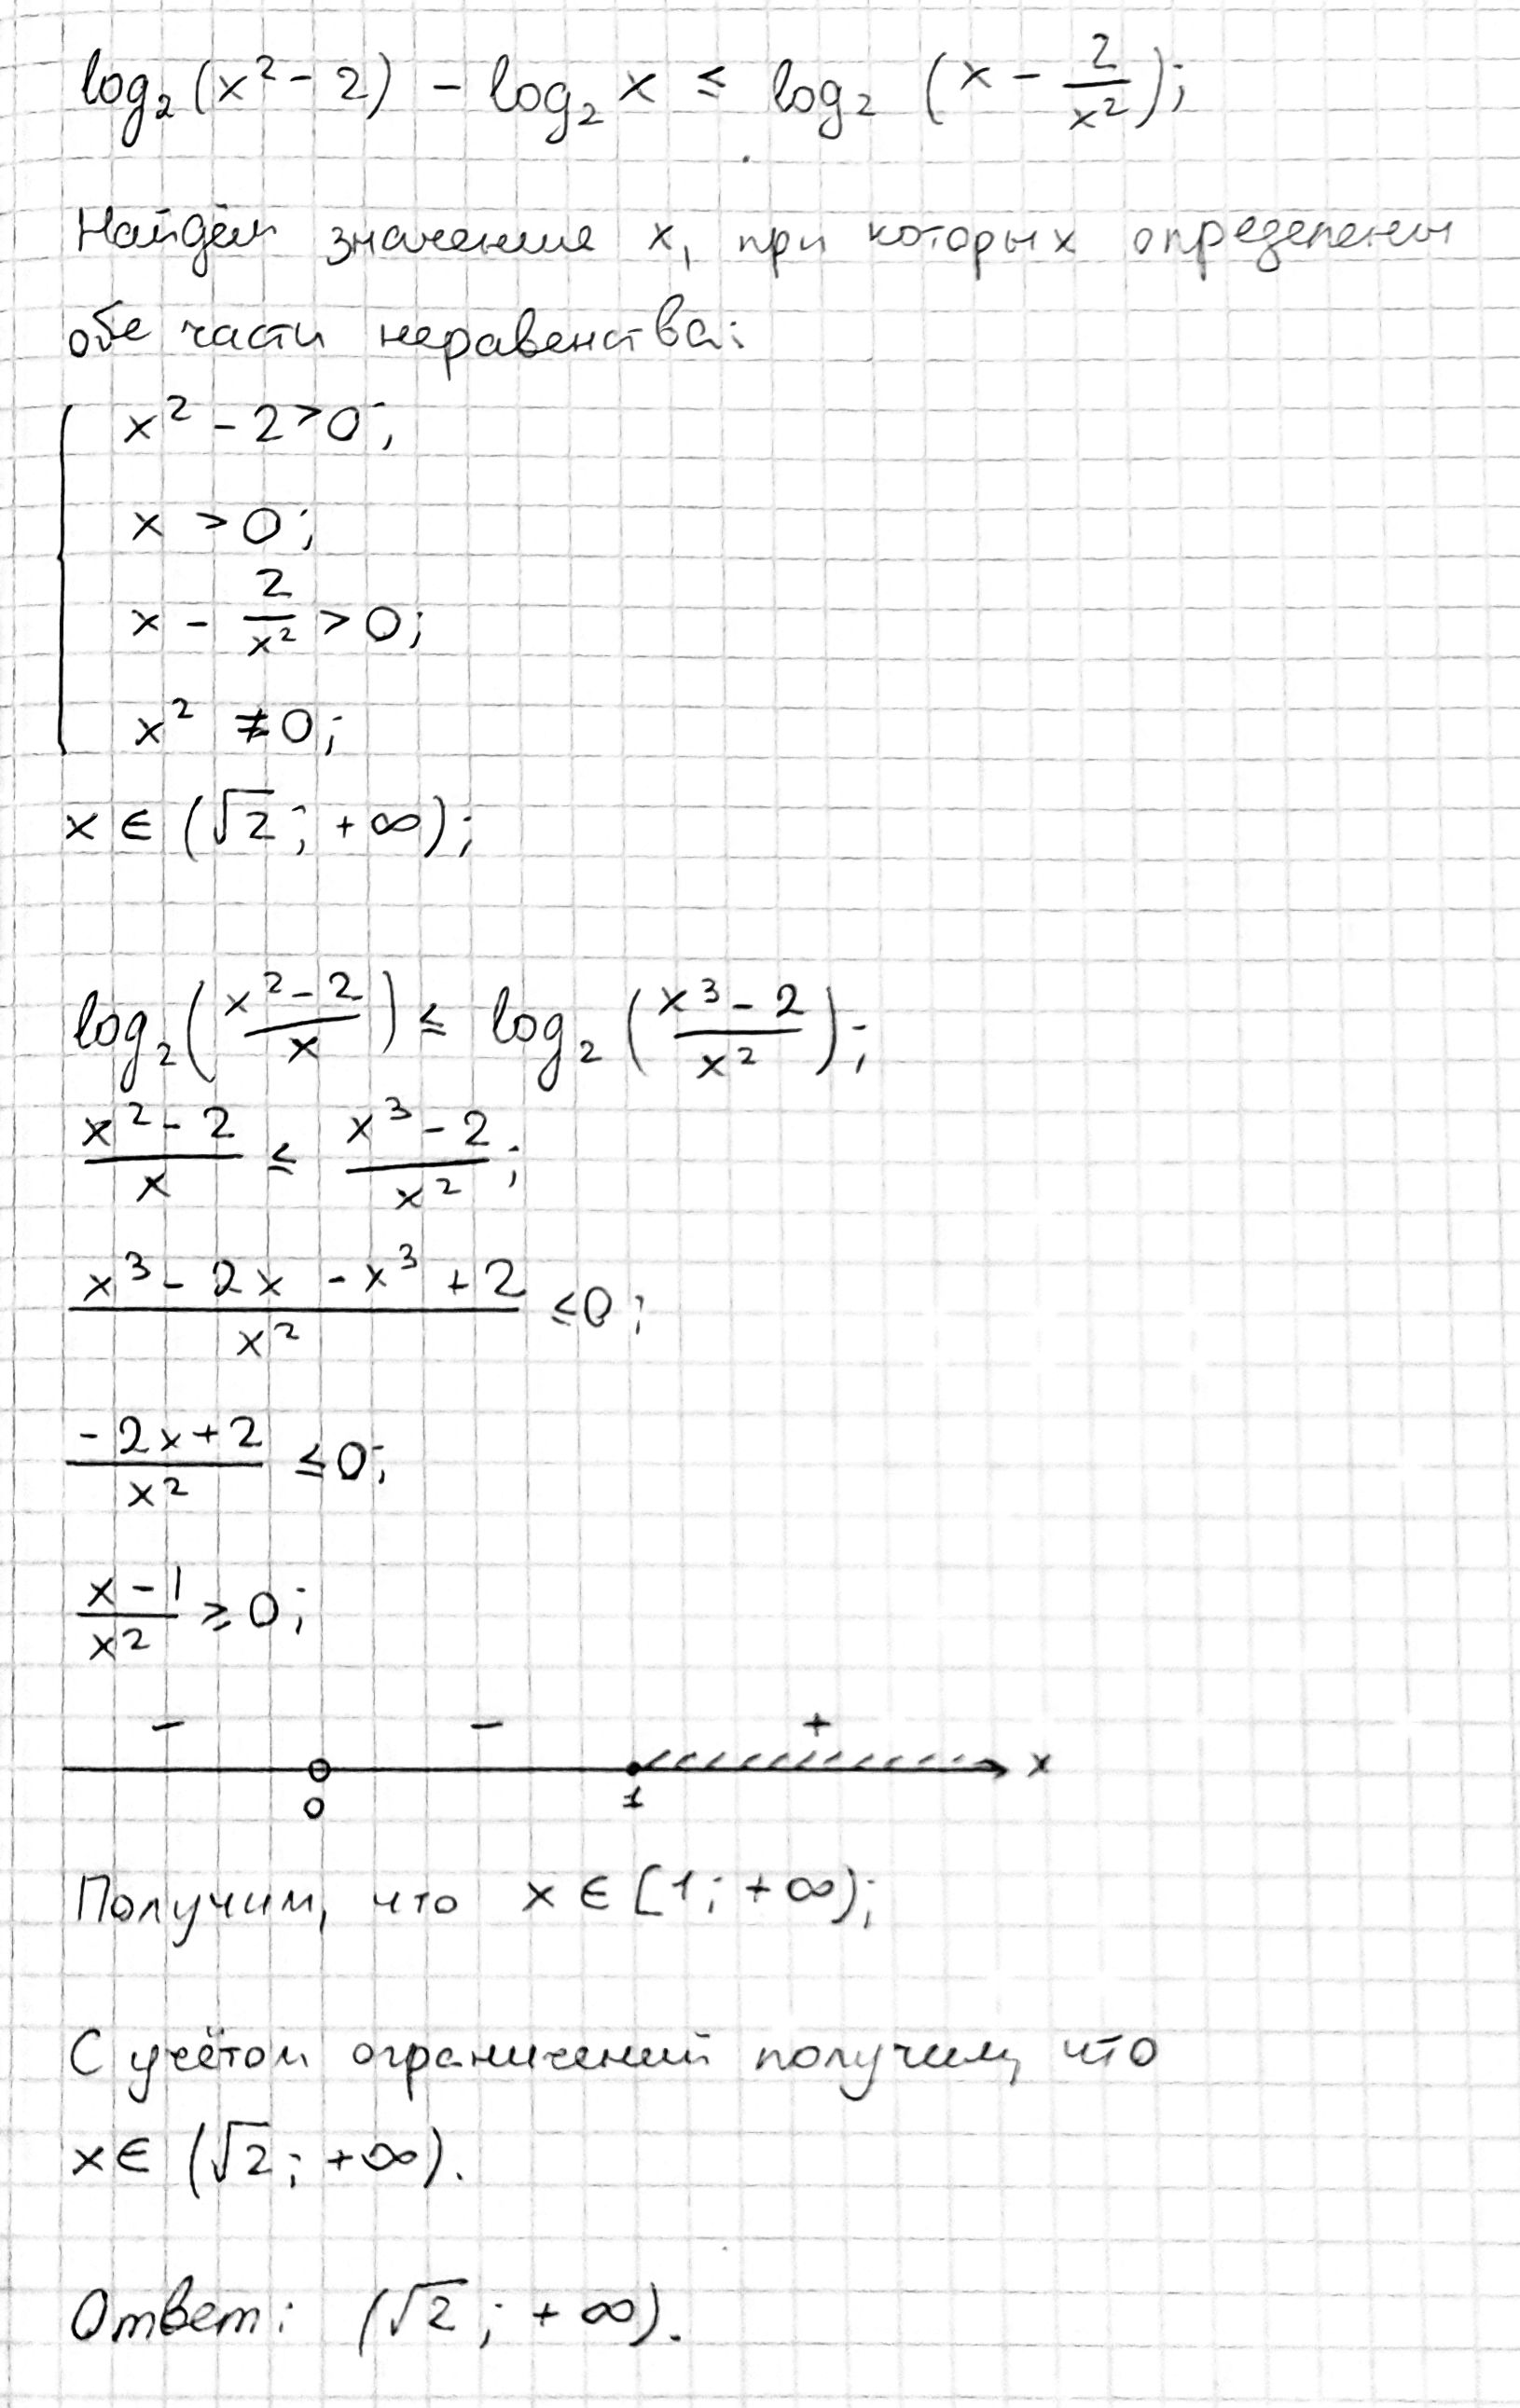 log₂(x² - 2) - log₂ x ≤ log₂ (x - 2/x²);
Найдём значение x, при которых определены
обе части неравенства:
x² - 2 > 0;
x > 0;
x - 2/x² > 0;
x² ≠ 0;
x ∈ (√2; +∞);
log₂((x² - 2)/x) ≤ log₂((x³ - 2)/x²);
(x² - 2)/x ≤ (x³ - 2)/x²;
(x³ - 2x - x³ + 2)/x² ≤ 0;
(-2x + 2)/x² ≤ 0;
(x - 1)/x² ≥ 0;
- - +
x
0 1
Получим, что x ∈ [1; +∞);
С учётом ограничений получим, что
x ∈ (√2; +∞).
Ответ: (√2; +∞).